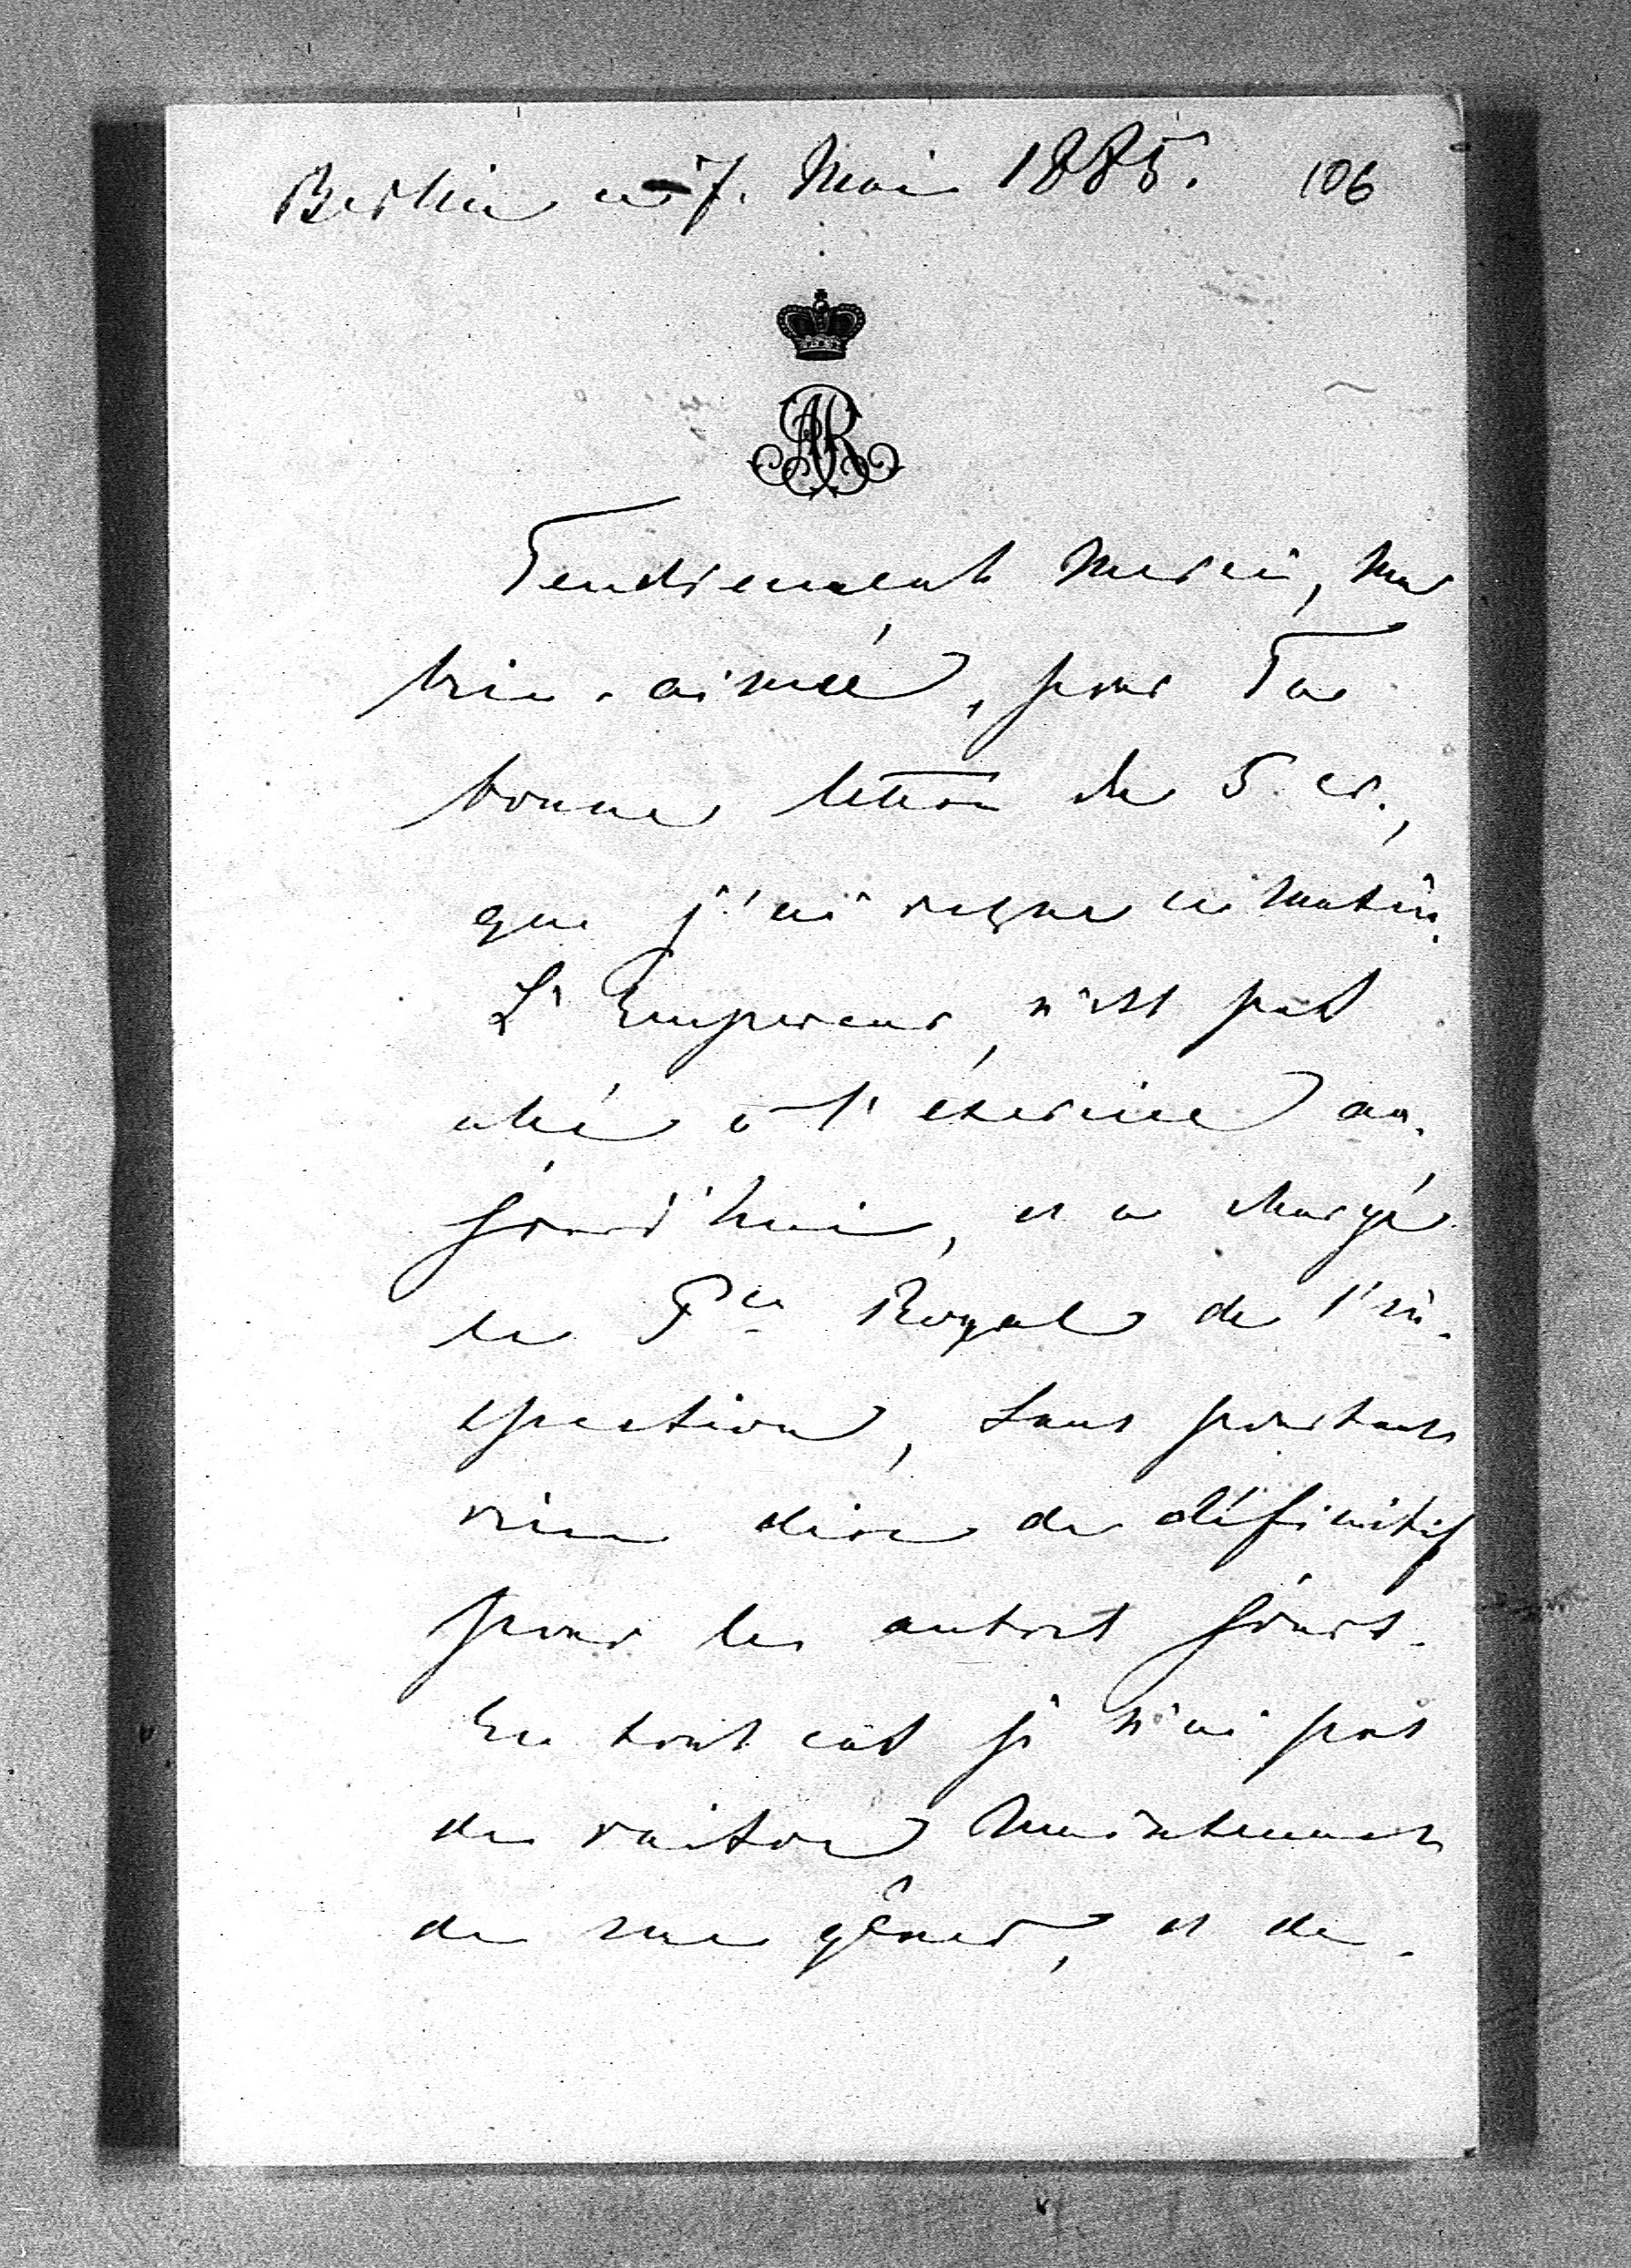 Berlin ce 7. Mai 1885. 106
AR
Tendrement merci, ma
bien-aimée, pour Ta
bonne lettre du 5. cr.,
que j'ai reçue ce matin.
L'Empereur n'est pas
allé à l'exercice au-
jourd'hui, et a chargé
le Pce Royal de l'in-
spection, sans pourtant
rien dire de définitif
pour les autres jours.
En tout cas je n'ai pas
de raison maintenant
de me gêner, et de